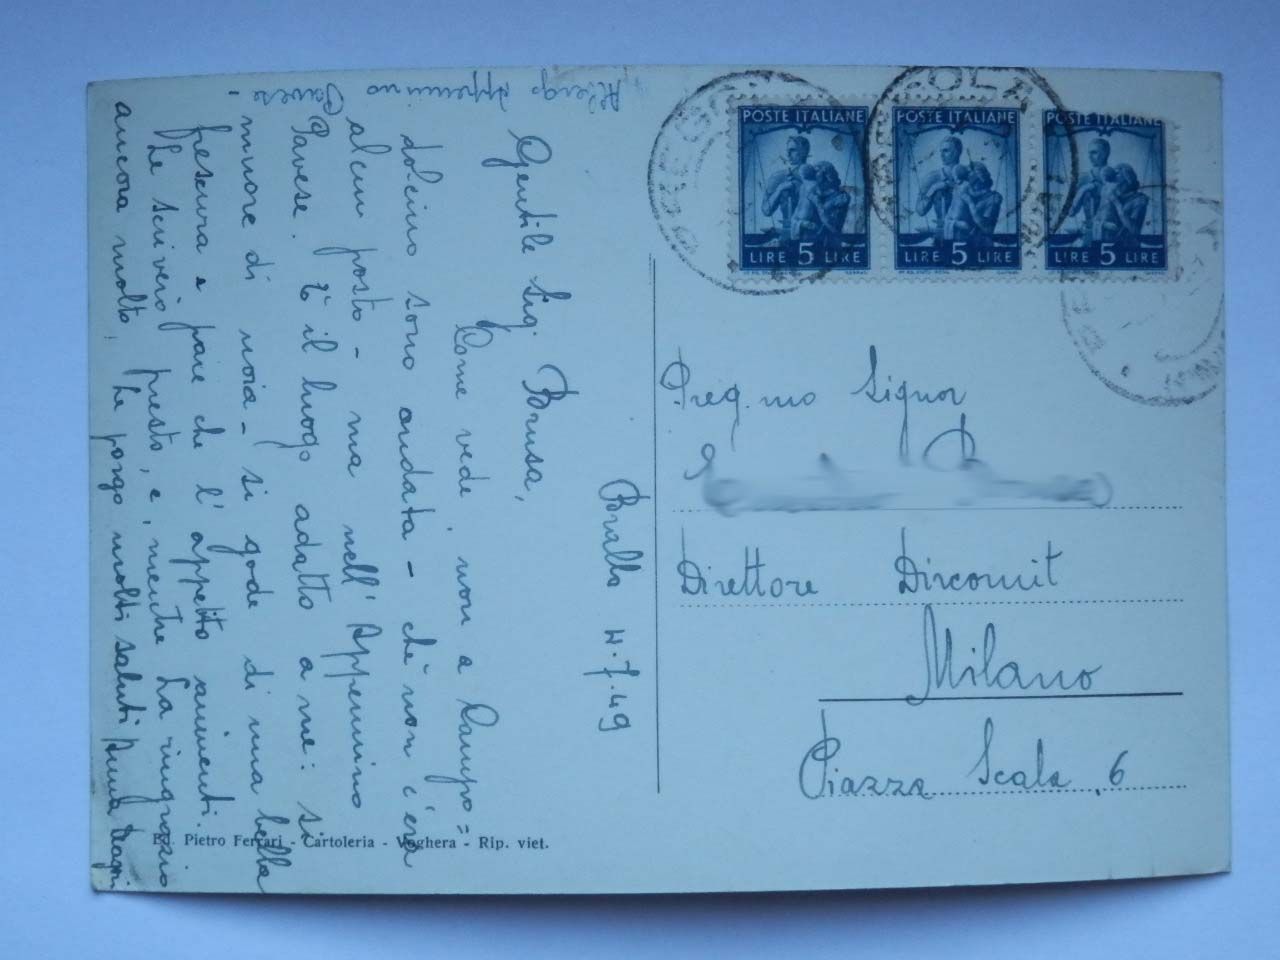 Albergo Appennino
Pavese -
Bralla 4.7.49
Gentile Sig. Brusa,
Come vede, non a Campo=
dolcino sono andata - chè non c'era
alcun posto - ma nell'Appennino
Pavese. È il luogo adatto a me: si
muore di noia - si gode di una bella
frescura e pare che l'appetito aumenti.
Le scriverò presto, e, mentre La ringrazio
ancora molto, Le porgo molti saluti Anna
Ed. Pietro Ferrari - Cartoleria - Voghera - Rip. viet.
POSTE ITALIANE POSTE ITALIANE POSTE ITALIANE
LIRE 5 LIRE LIRE 5 LIRE LIRE 5 LIRE
Preg.mo Signor
Direttore Dircomit
Milano
Piazza Scala, 6